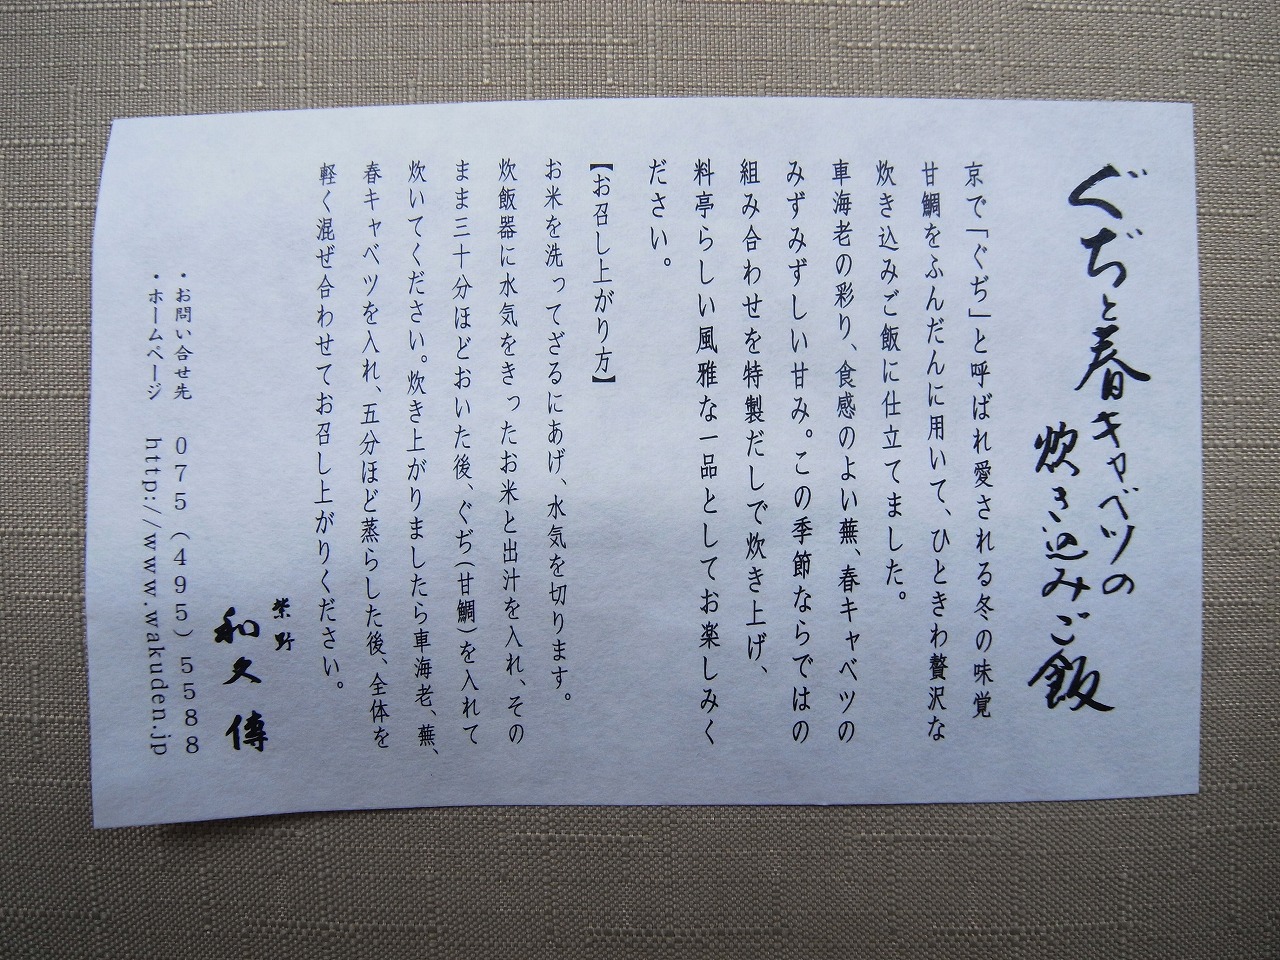 ぐぢと春キャベツの
炊き込みご飯
京で「ぐぢ」と呼ばれ愛される冬の味覚
甘鯛をふんだんに用いて、ひときわ贅沢な
炊き込みご飯に仕立てました。
車海老の彩り、食感のよい蕪、春キャベツの
みずみずしい甘み。この季節ならではの
組み合わせを特製だしで炊き上げ、
料亭らしい風雅な一品としてお楽しみく
ださい。
【お召し上がり方】
お米を洗ってざるにあげ、水気を切ります。
炊飯器に水気をきったお米と出汁を入れ、その
まま三十分ほどおいた後、ぐぢ(甘鯛)を入れて
炊いてください。炊き上がりましたら車海老、蕪、
春キャベツを入れ、五分ほど蒸らした後、全体を
軽く混ぜ合わせてお召し上がりください。
紫野
和久傳
・お問い合せ先 075(495)5588
・ホームページ http://www.wakuden.jp